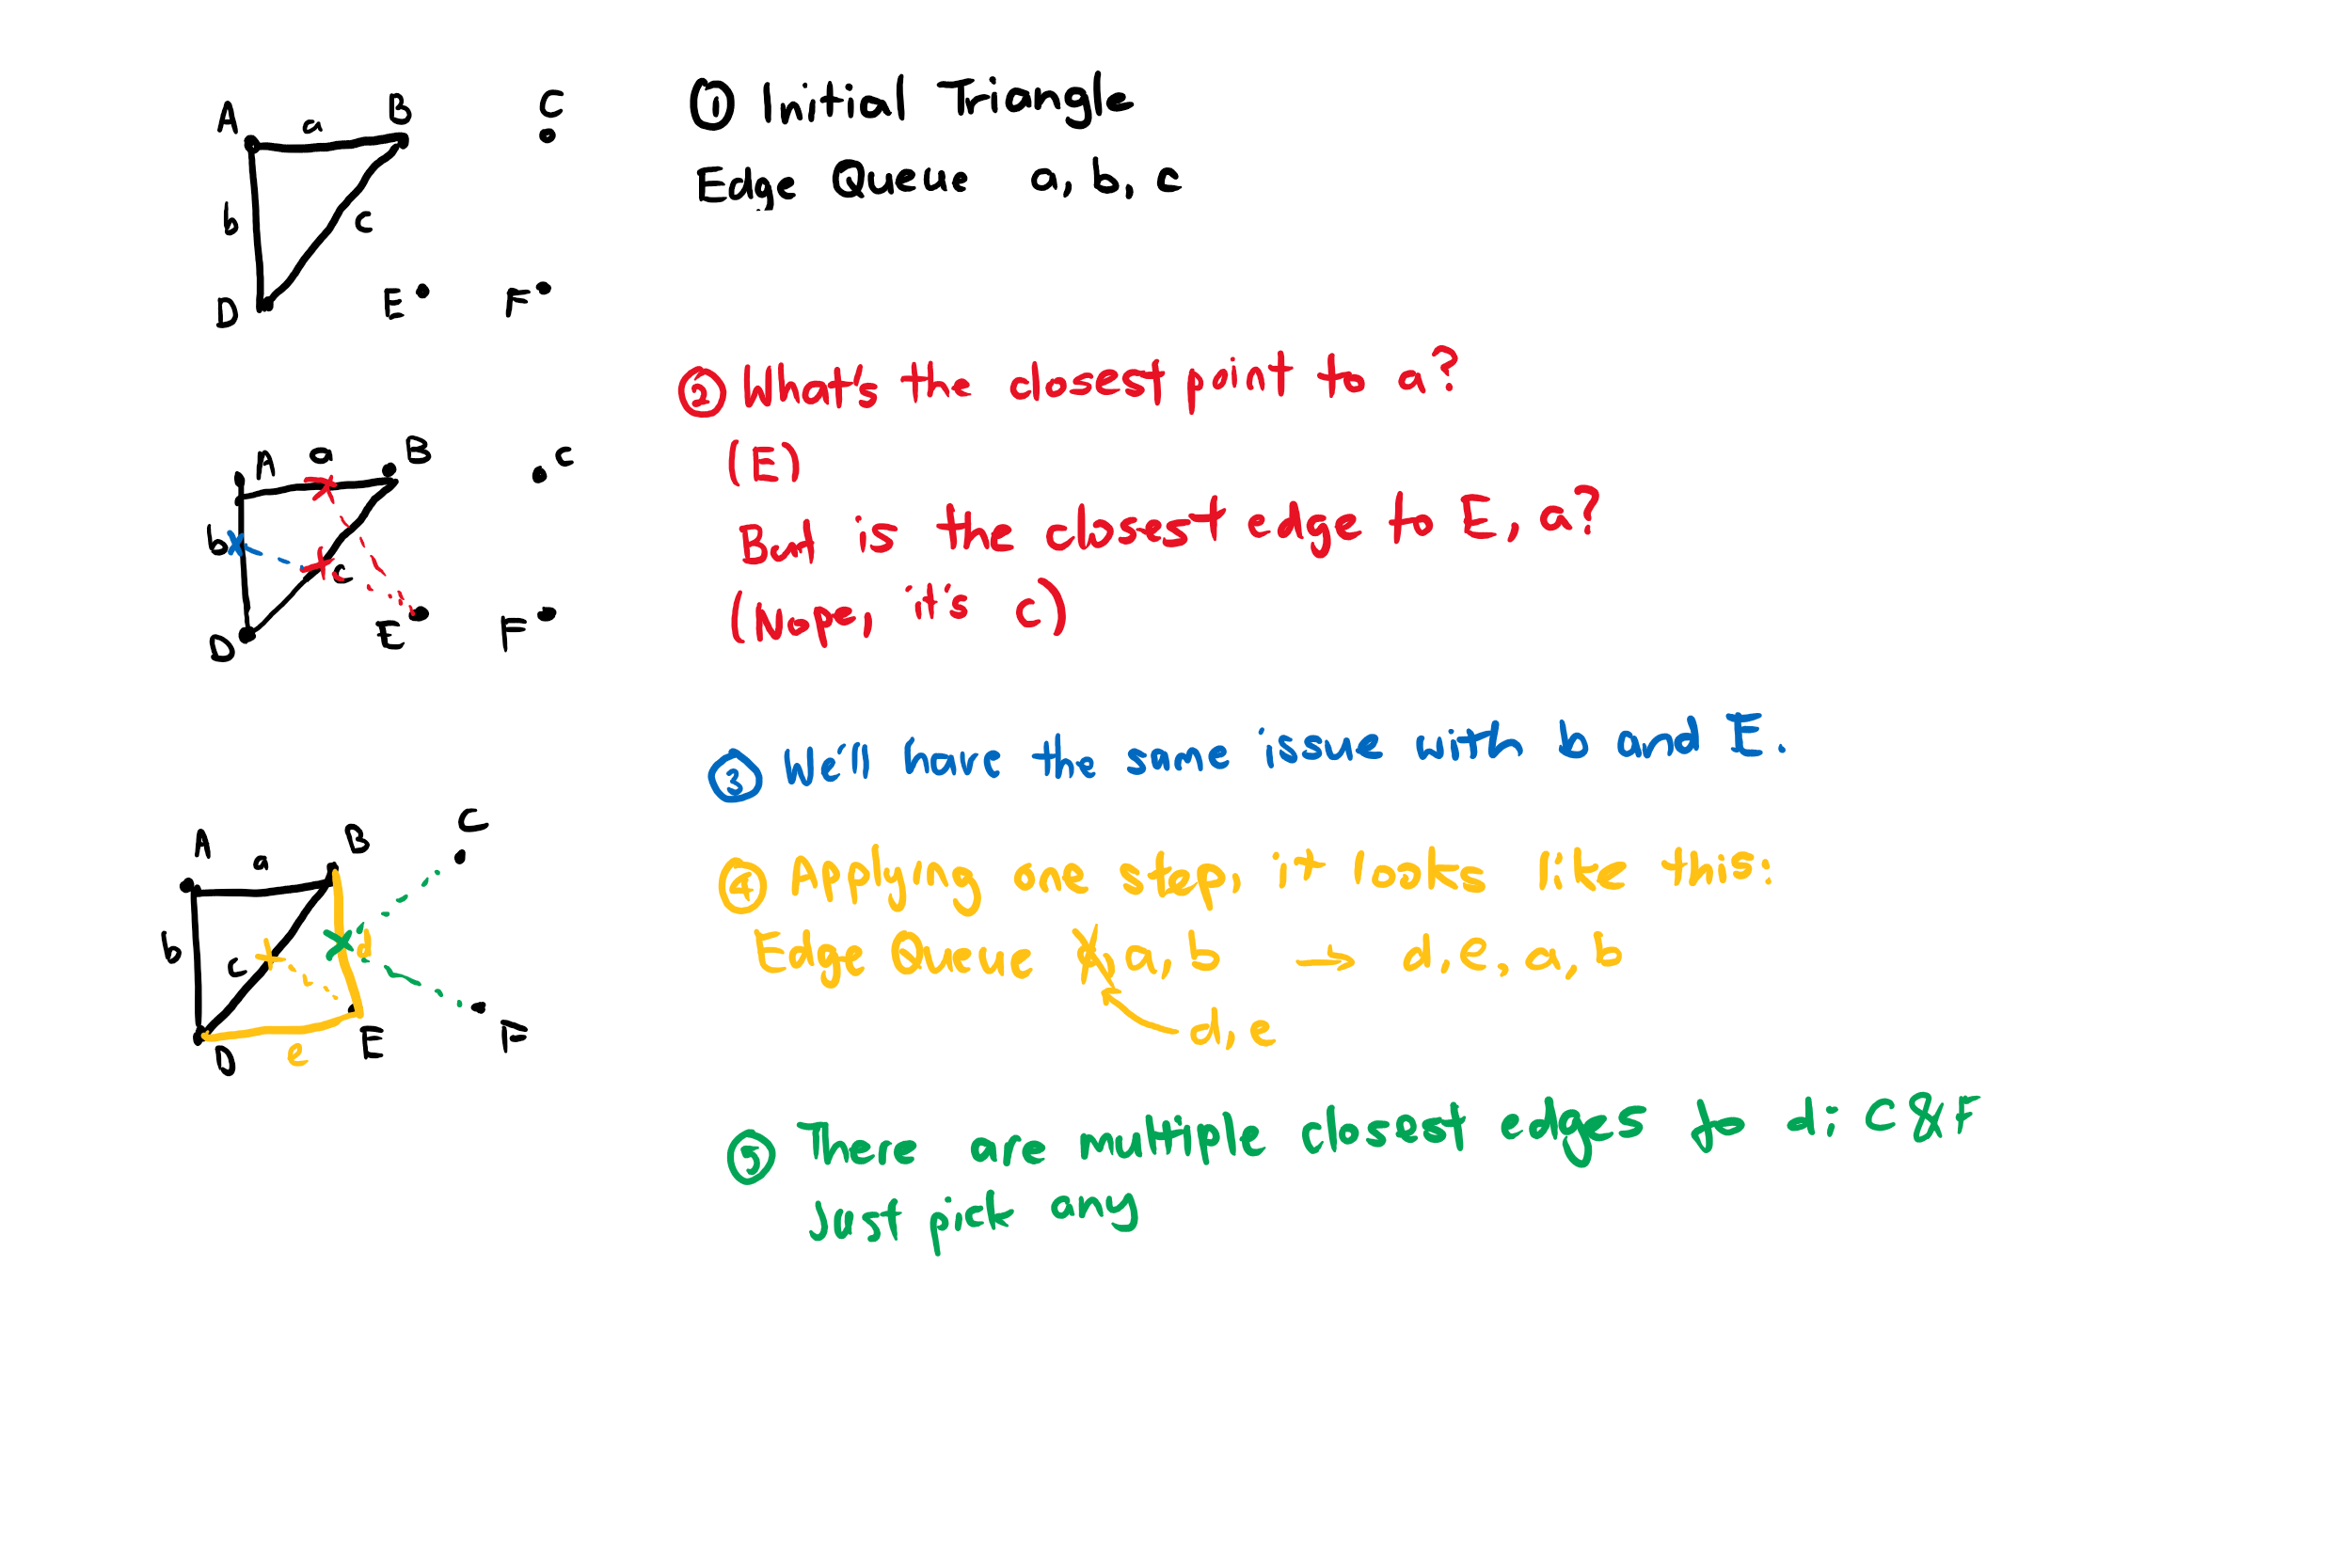 A a B C
b c
D E F
① Initial Triangle
Edge Queue a, b, c
② What's the closest point to a?
(E)
But is the closest edge to E, a?
(Nope, it's c)
A a B C
b c
D E F
③ We'll have the same issue with b and E.
④ Applying one step, it looks like this:
Edge Queue c, a, b → d, e, a, b
d, e
A a B C
b c d
D e E F
⑤ There are multiple closest edges to d: C & F
Just pick any